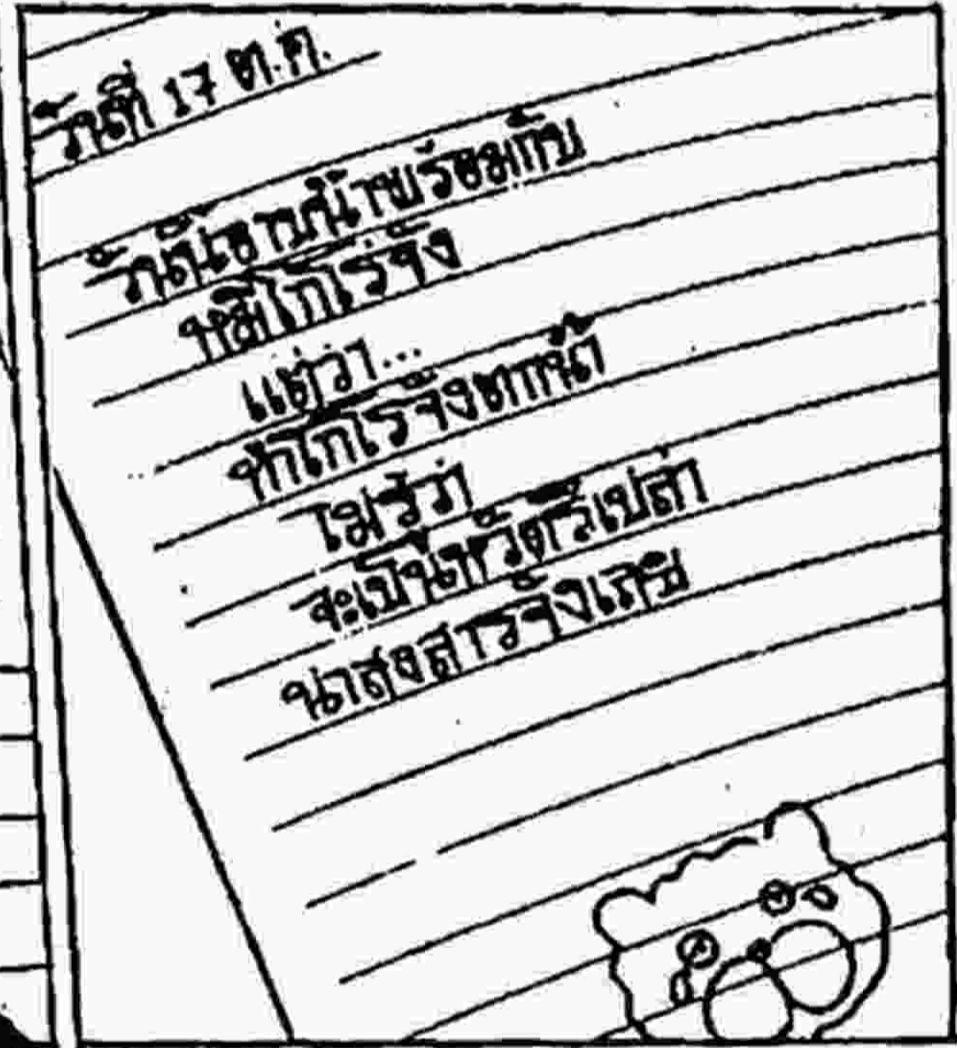 วันที่ 17 ต.ค.
วันนี้อาบน้ำพร้อมกับ
หมีโกโรจัง
แต่ว่า...
ทำโกโรจังตกน้ำ
ไม่รู้ว่า
จะเป็นหวัดรึเปล่า
น่าสงสารจังเลย